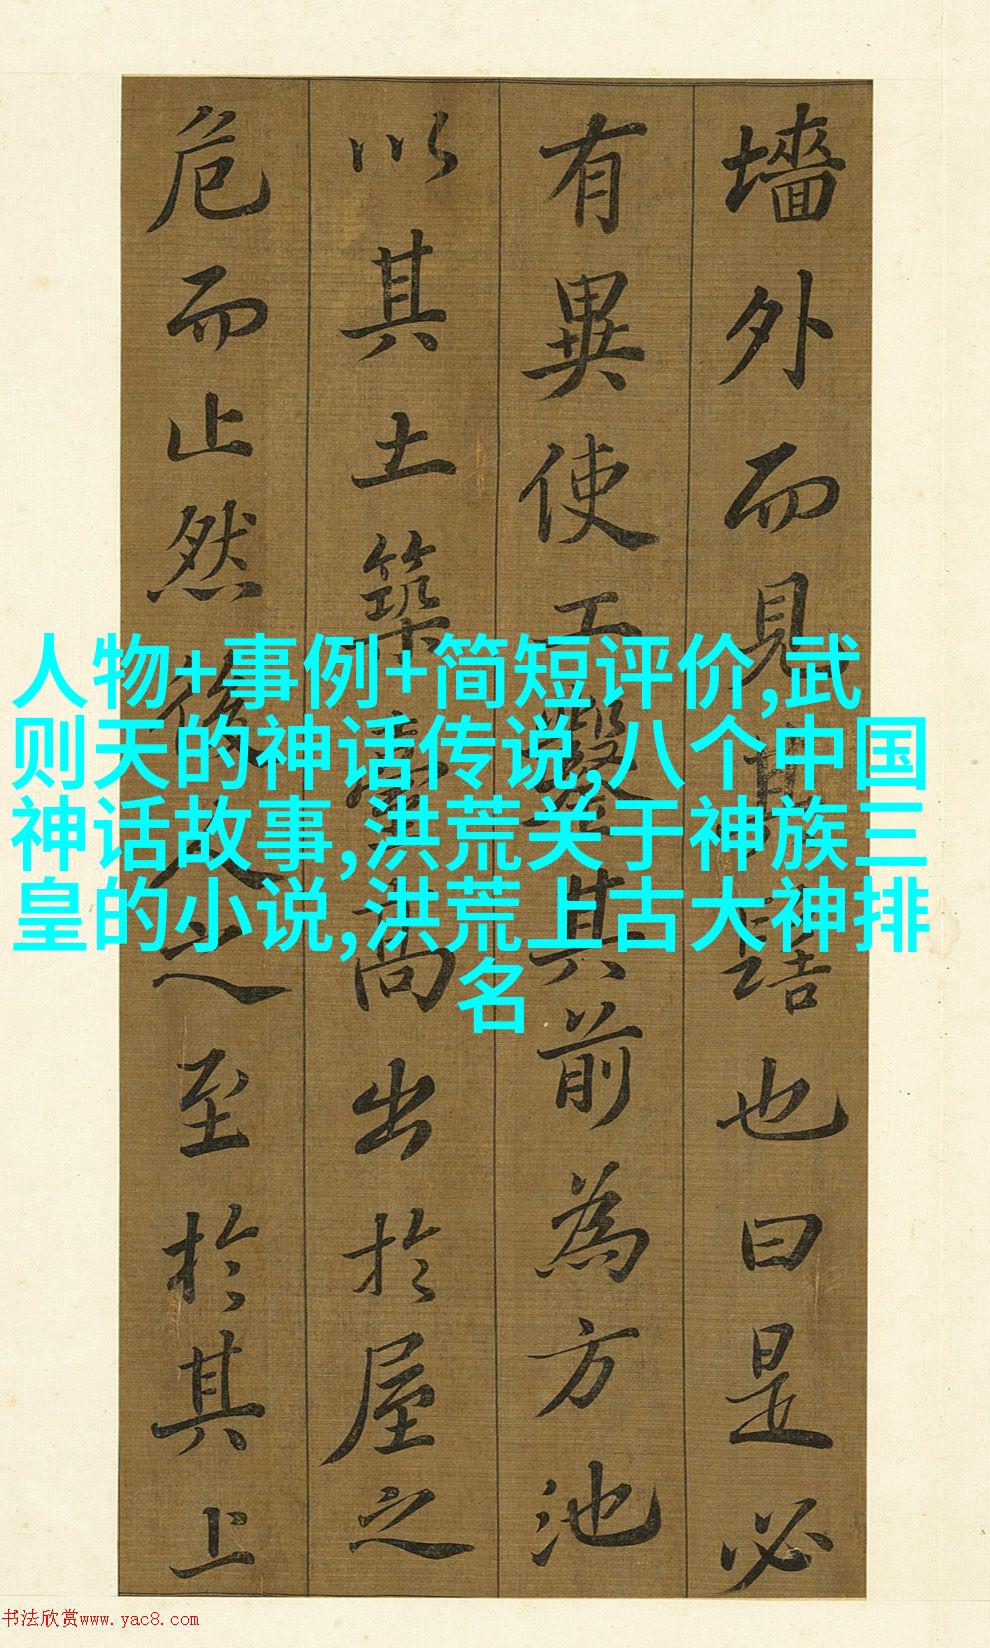 墻外而見其髻也曰是必
有異使工鑿其前為方池
以其土築臺高出於屋之
危而止然後人之至於其上
人物+事例+简短评价,武
则天的神话传说,八个中国
神话故事,洪荒关于神族三
皇的小说,洪荒上古大神排
名
书法欣赏www.yac8.com